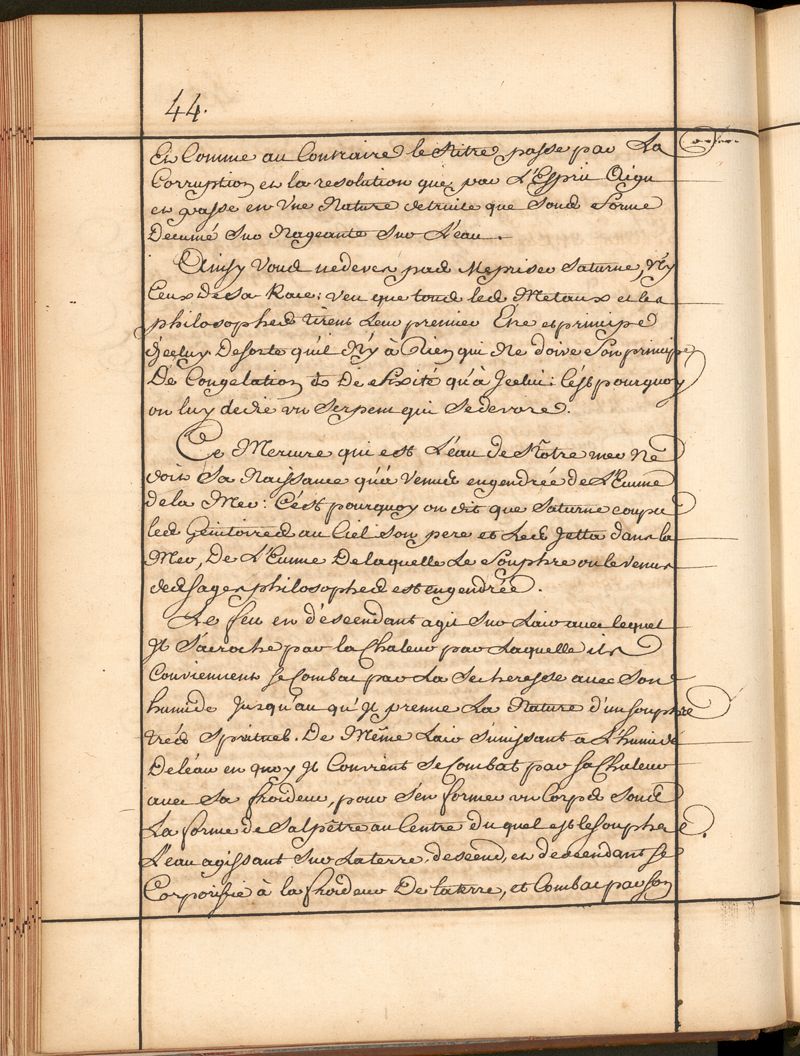 44.
Et Comme au Contraire le Nitre passe par La
Corruption et la resolution que par L'Esprit Aigu
et passe en Vne Nature detruite que Sous forme
Decumé Sur Nageante Sur L'eau.
Ainsy Vous nedeves pas Mepriser Saturne, Ny
Ceux De Sa Race: veu que tous les Metaux et les
philosophes tirent Leur premier Etre et principe
d'jceluy Desorte qu'il N'y à Rien qui Ne doive Son principe
De Congelation & De fixité qu'à Jcelui: C'est pourquoy
on luy dedie vn Serpent qui Sedevore.
Ce Mercure qui est L'eau de Nôtre mer Ne
doit Sa Naissance qu'a Venus engendrée de L'Ecume
de la Mer: C'est pourquoy on dit que Saturne coupa
les Genitoires au Ciel Son pere et Les Jetta dans la
Mer, De L'Ecume De laquelle Le Souphre ou le Venus
des sages philosophes est engendrée.
Le feu en déscendant agit Sur Lair avec lequel
Jl S'acroche par la Chaleur par Laquelle ils
Conviennent Se Combat par La Secheresse avec Son
humide Jusqu'au qu'Jl prenne La Nature d'un souphre
trés Spirituel. De Même Lair S'unissant a L'humide
De léau en quoy Jl Convient Se Combat par Sa Chaleur
avec Sa froideur, pour S'en former vn Corps Sous
La forme de Salpêtre au Centre du quel est le souphre.
L'eau agissant Sur La terre, descend, et descendant se
Corporifie à la froideur De la terre, et Combat par son